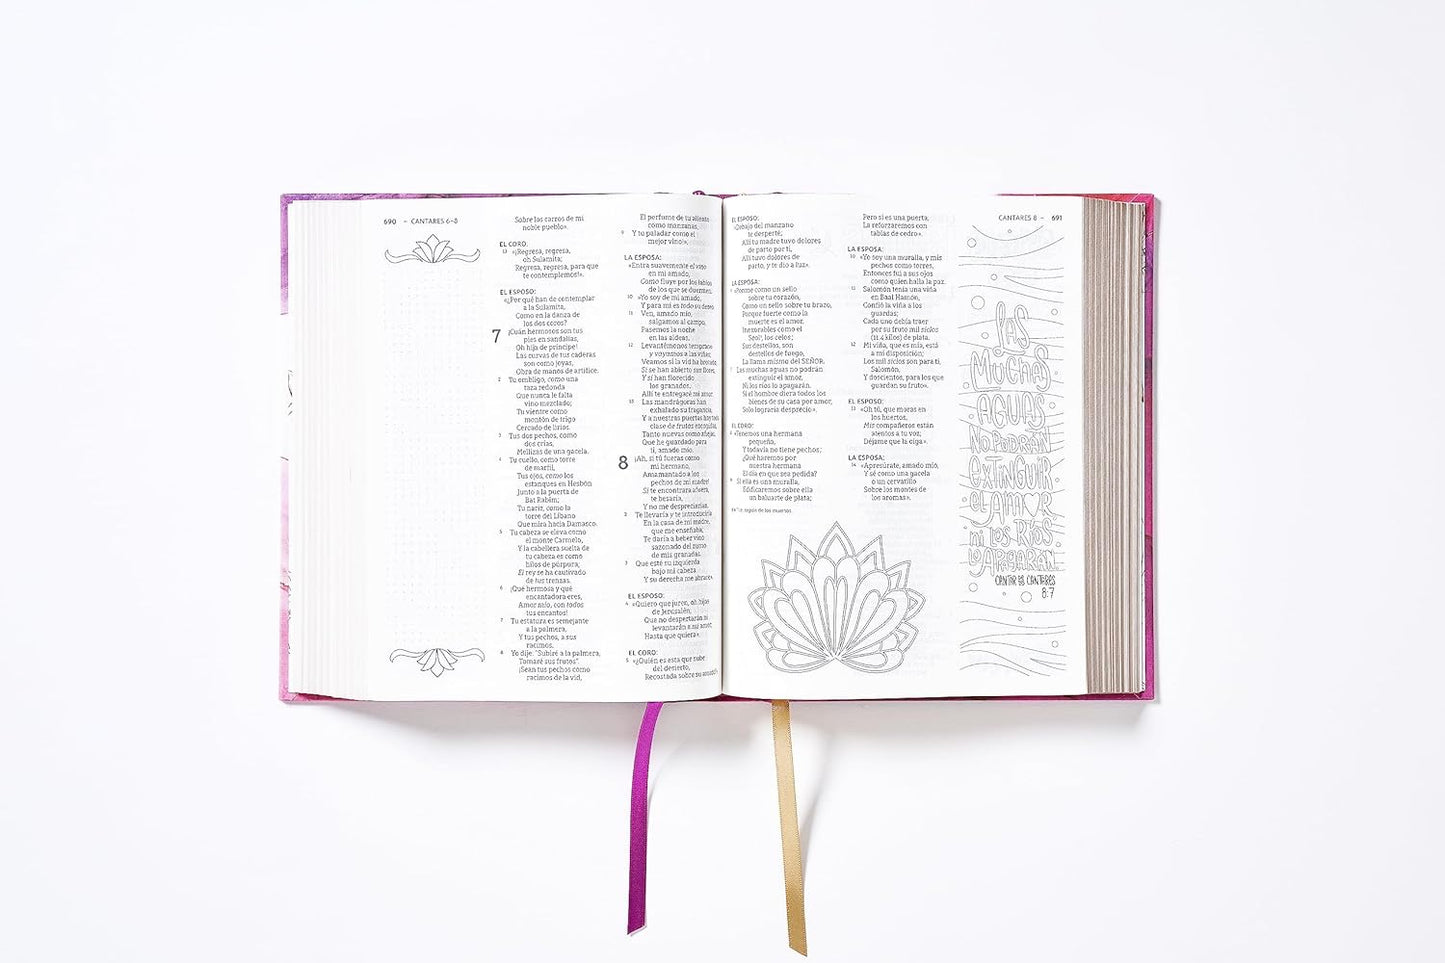 690 – CANTARES 6–8
Sobre los carros de mi
noble pueblo».
EL CORO:
13 «¡Regresa, regresa,
oh Sulamita;
Regresa, regresa, para que
te contemplemos!».
EL ESPOSO:
«¿Por qué han de contemplar
a la Sulamita,
Como en la danza de
los dos coros?
7 ¡Cuán hermosos son tus
pies en sandalias,
Oh hija de príncipe!
Las curvas de tus caderas
son como joyas,
Obra de manos de artífice.
2 Tu ombligo, como una
taza redonda
Que nunca le falta
vino mezclado;
Tu vientre como
montón de trigo
Cercado de lirios.
3 Tus dos pechos, como
dos crías,
Mellizas de una gacela.
4 Tu cuello, como torre
de marfil,
Tus ojos, como los
estanques en Hesbón
Junto a la puerta de
Bat Rabim;
Tu nariz, como la
torre del Líbano
Que mira hacia Damasco.
5 Tu cabeza se eleva como
el monte Carmelo,
Y la cabellera suelta de
tu cabeza es como
hilos de púrpura;
El rey se ha cautivado
de tus trenzas.
6 ¡Qué hermosa y qué
encantadora eres,
Amor mío, con todos
tus encantos!
7 Tu estatura es semejante
a la palmera,
Y tus pechos, a sus
racimos.
8 Yo dije: "Subiré a la palmera,
Tomaré sus frutos".
¡Sean tus pechos como
racimos de la vid,
El perfume de tu aliento
como manzanas,
9 Y tu paladar como el
mejor vino!».
LA ESPOSA:
«Entra suavemente el vino
en mi amado,
Como fluye por los labios
de los que se duermen.
10 «Yo soy de mi amado,
Y para mí es todo su deseo.
11 Ven, amado mío,
salgamos al campo,
Pasemos la noche
en las aldeas.
12 Levantémonos temprano
y vayamos a las viñas;
Veamos si la vid ha brotado,
Si se han abierto sus flores,
Y si han florecido
los granados.
Allí te entregaré mi amor.
13 Las mandrágoras han
exhalado su fragancia,
Y a nuestras puertas hay toda
clase de frutos escogidos,
Tanto nuevos como añejos,
Que he guardado para
ti, amado mío.
8 ¡Ah, si tú fueras como
mi hermano,
Amamantado a los
pechos de mi madre!
Si te encontrara afuera,
te besaría,
Y no me despreciarían.
2 Te llevaría y te introduciría
En la casa de mi madre,
que me enseñaba;
Te daría a beber vino
sazonado del zumo
de mis granadas.
3 Que esté su izquierda
bajo mi cabeza
Y su derecha me abrace».
EL ESPOSO:
4 «Quiero que juren, oh hijas
de Jerusalén,
Que no despertarán ni
levantarán a mi amor,
Hasta que quiera».
EL CORO:
5 «¿Quién es esta que sube
del desierto,
Recostada sobre su amado?».
EL ESPOSO:
«Debajo del manzano
te desperté;
Allí tu madre tuvo dolores
de parto por ti,
Allí tuvo dolores de
parto, y te dio a luz».
LA ESPOSA:
6 «Ponme como un sello
sobre tu corazón,
Como un sello sobre tu brazo,
Porque fuerte como la
muerte es el amor,
Inexorables como el
Seol, los celos;
Sus destellos, son
destellos de fuego,
La llama misma del SEÑOR.
7 Las muchas aguas no podrán
extinguir el amor,
Ni los ríos lo apagarán.
Si el hombre diera todos los
bienes de su casa por amor,
Solo lograría desprecio».
EL CORO:
8 «Tenemos una hermana
pequeña,
Y todavía no tiene pechos;
¿Qué haremos por
nuestra hermana
El día en que sea pedida?
9 Si ella es una muralla,
Edificaremos sobre ella
un baluarte de plata;
región de los muertos.
CANTARES 8 – 691
Pero si es una puerta,
La reforzaremos con
tablas de cedro».
LA ESPOSA:
10 «Yo soy una muralla, y mis
pechos como torres,
Entonces fui a sus ojos
como quien halla la paz.
11 Salomón tenía una viña
en Baal Hamón,
Confió la viña a los
guardas;
Cada uno debía traer
por su fruto mil siclos
(11.4 kilos) de plata.
12 Mi viña, que es mía, está
a mi disposición;
Los mil siclos son para ti,
Salomón,
Y doscientos, para los que
guardan su fruto».
EL ESPOSO:
13 «Oh tú, que moras en
los huertos,
Mis compañeros están
atentos a tu voz;
Déjame que la oiga».
LA ESPOSA:
14 «Apresúrate, amado mío,
Y sé como una gacela
o un cervatillo
Sobre los montes de
los aromas».
LAS
MUCHAS
AGUAS
NO PODRÁN
EXTINGUIR
EL AMOR
NI LOS RÍOS
LO APAGARÁN
CANTAR DE CANTARES
8:7